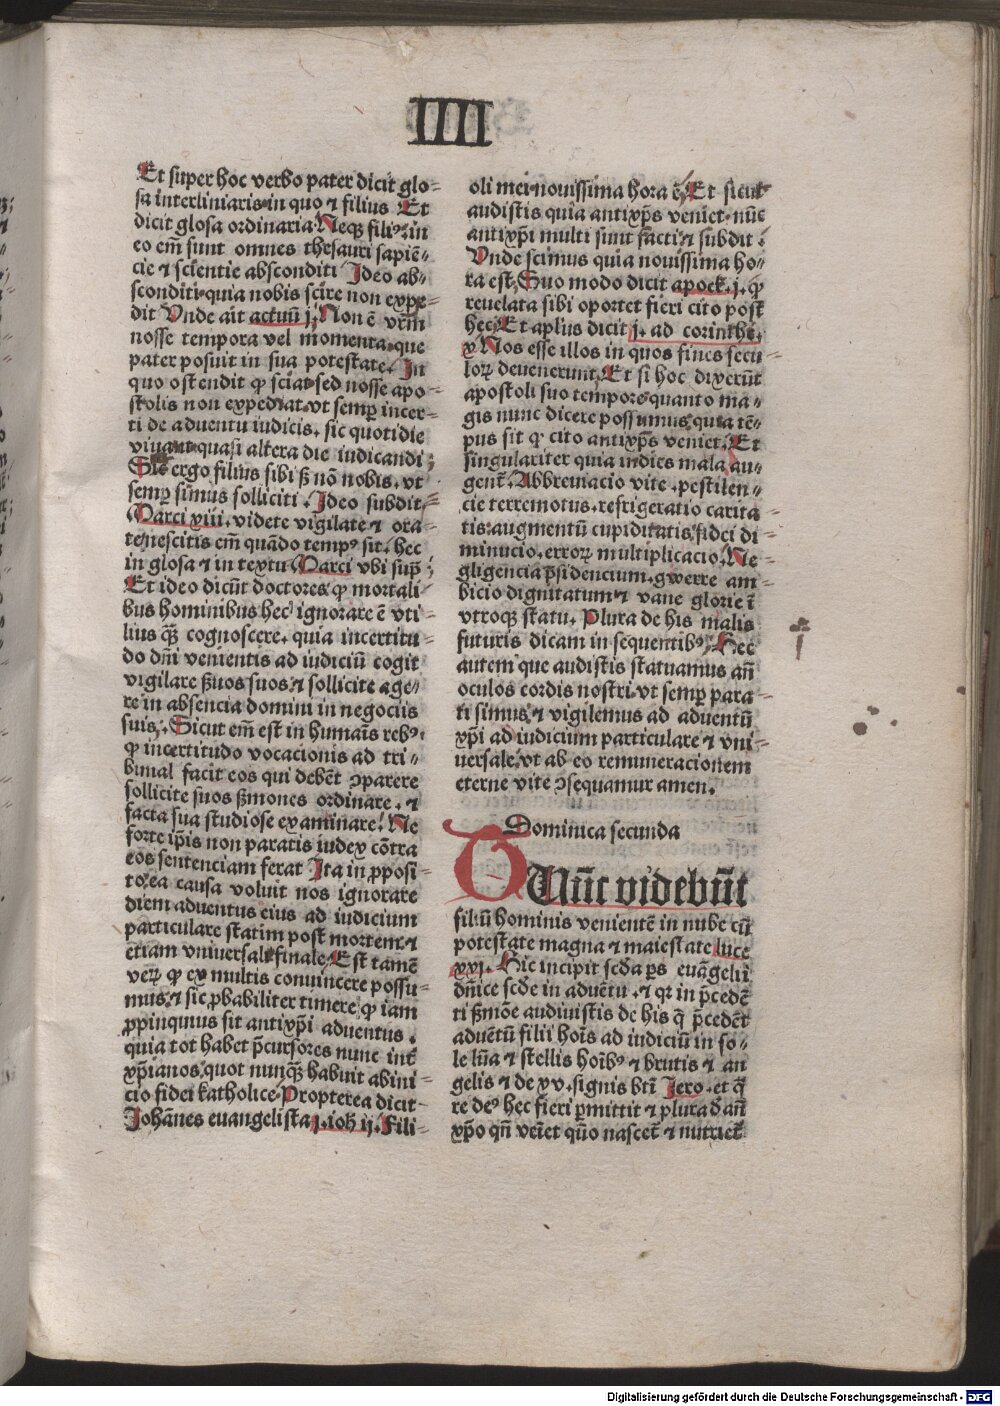 IIII
Et super hoc verbo pater dicit glo⸗
sa interliniaris·in quo ⁊ filius Et
dicit glosa ordinaria Neqꝫ filiꝰ·in
eo em̄ sunt omnes thesauri sapiē⸗
cie ⁊ scientie absconditi Ideo ab⸗
sconditi·quia nobis scire non expe⸗
dit Vnde ait actuū j. Non ē vr̄m
nosse tempora vel momenta·que
pater posuit in sua potestate. In
quo ostendit ꝙ sciat·sed nosse apo⸗
stolis non expediat·vt semꝑ incer⸗
ti de aduentu iudicis. sic quotidie
viuant·quasi altera die iudicandi
Sic ergo filius sibi sꝫ nō nobis. vt
semꝑ simus solliciti. Ideo subdit
Marci xiii. videte vigilate ⁊ ora⸗
te·nescitis em̄ quādo tempꝰ sit. hec
in glosa ⁊ in textu Marci vbi supͣ
Et ideo dicūt doctores·ꝙ mortali⸗
bus hominibus hec ignorare ē vti⸗
lius qͣꝫ cognoscere. quia incertitu⸗
do dn̄i venientis ad iudiciū cogit
vigilare ẞuos suos·⁊ sollicite age⸗
re in absencia domini in negociis
suis. Sicut em̄ est in humaīs rebꝰ·
ꝙ incertitudo vocacionis ad tri⸗
bunal facit eos qui debēt ꝯparere
sollicite suos ẞmones ordinare. ⁊
facta sua studiose examinare. Ne
forte ip̄is non paratis iudex cōtra
eos sentenciam ferat Ita in ꝓposi⸗
to·ea causa voluit nos ignorare
diem aduentus eius ad iudicium
particulare statim post mortem·⁊
etiam vniuersale·finale. Est tamē
veꝝ ꝙ ex multis conuincere possu⸗
mus·⁊ sic ꝓbabiliter timere ꝙ iam
ꝓpinquus sit antixp̄i aduentus.
quia tot habet p̄cursores nunc int̄
xp̄ianos·quot nunqͣꝫ habuit abini⸗
cio fidei katholice·Propterea dicit
Johānes euangelista j. ioh ij. Fili⸗
oli mei·nouissima hora ē. Et sicut
audistis quia antixp̄s veniet·nūc
antixp̄i multi sunt facti·⁊ subdit
Vnde scimus quia nouissima ho⸗
ra est. Suo modo dicit apock. j. ꝙ
reuelata sibi oportet fieri cito post
hec. Et aplus dicit j. ad corinthi.
x Nos esse illos in quos fines secu⸗
loꝝ deuenerunt. Et si hoc dixerūt
apostoli suo tempore·quanto ma⸗
gis nunc dicere possumus·quia tē⸗
pus sit ꝙ cito antixp̄s veniet. Et
singulariter quia indies mala au⸗
gent̄. Abbreuiacio vite. pestilen⸗
cie terremotus. refrigeratio carita⸗
tis·augmentū cupiditatis·fidei di⸗
minucio. erroꝝ multiplicacio. Ne⸗
gligencia p̄sidencium. gwerre am⸗
bicio dignitatum·⁊ vane glorie ī
vtroqꝫ statu. Plura de his malis
futuris dicam in sequentibꝰ. Hec
autem que audistis statuamus an̄
oculos cordis nostri·vt semꝑ para⸗
ti simus·⁊ vigilemus ad aduentū
xp̄i ad iudicium particulare ⁊ vni⸗
uersale·vt ab eo remuneracionem
eterne vite ꝯsequamur amen.
Dominica secunda
TUn̄c videbūt
filiū hominis venientē in nube cū
potestate magna ⁊ maiestate luce
xxj. Hic incipit sc̄da ꝑs euāgelii
dn̄ice sc̄de in aduētu. ⁊ qꝛ in p̄cedē
ti ẞmōe audiuistis de his q̄ p̄cedēt
aduētū filii hoīs ad iudiciū in so⸗
le lūa ⁊ stellis hoībꝰ ⁊ brutis ⁊ an
gelis ⁊ de xv. signis btī Jero. et q̄
re deꝰ hec fieri ꝑmittit ⁊ plura ð an̄
xp̄o qn̄ veīet quō nascet̄ ⁊ nutriet̄
Digitalisierung gefördert durch die Deutsche Forschungsgemeinschaft - DFG